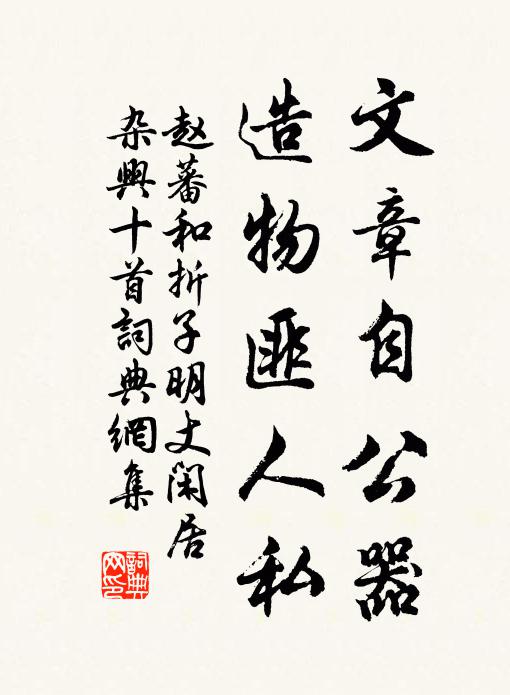 文章自公器
造物匪人私
赵蕃和折子明丈闲居
杂兴十首詞典網集
詞典网印